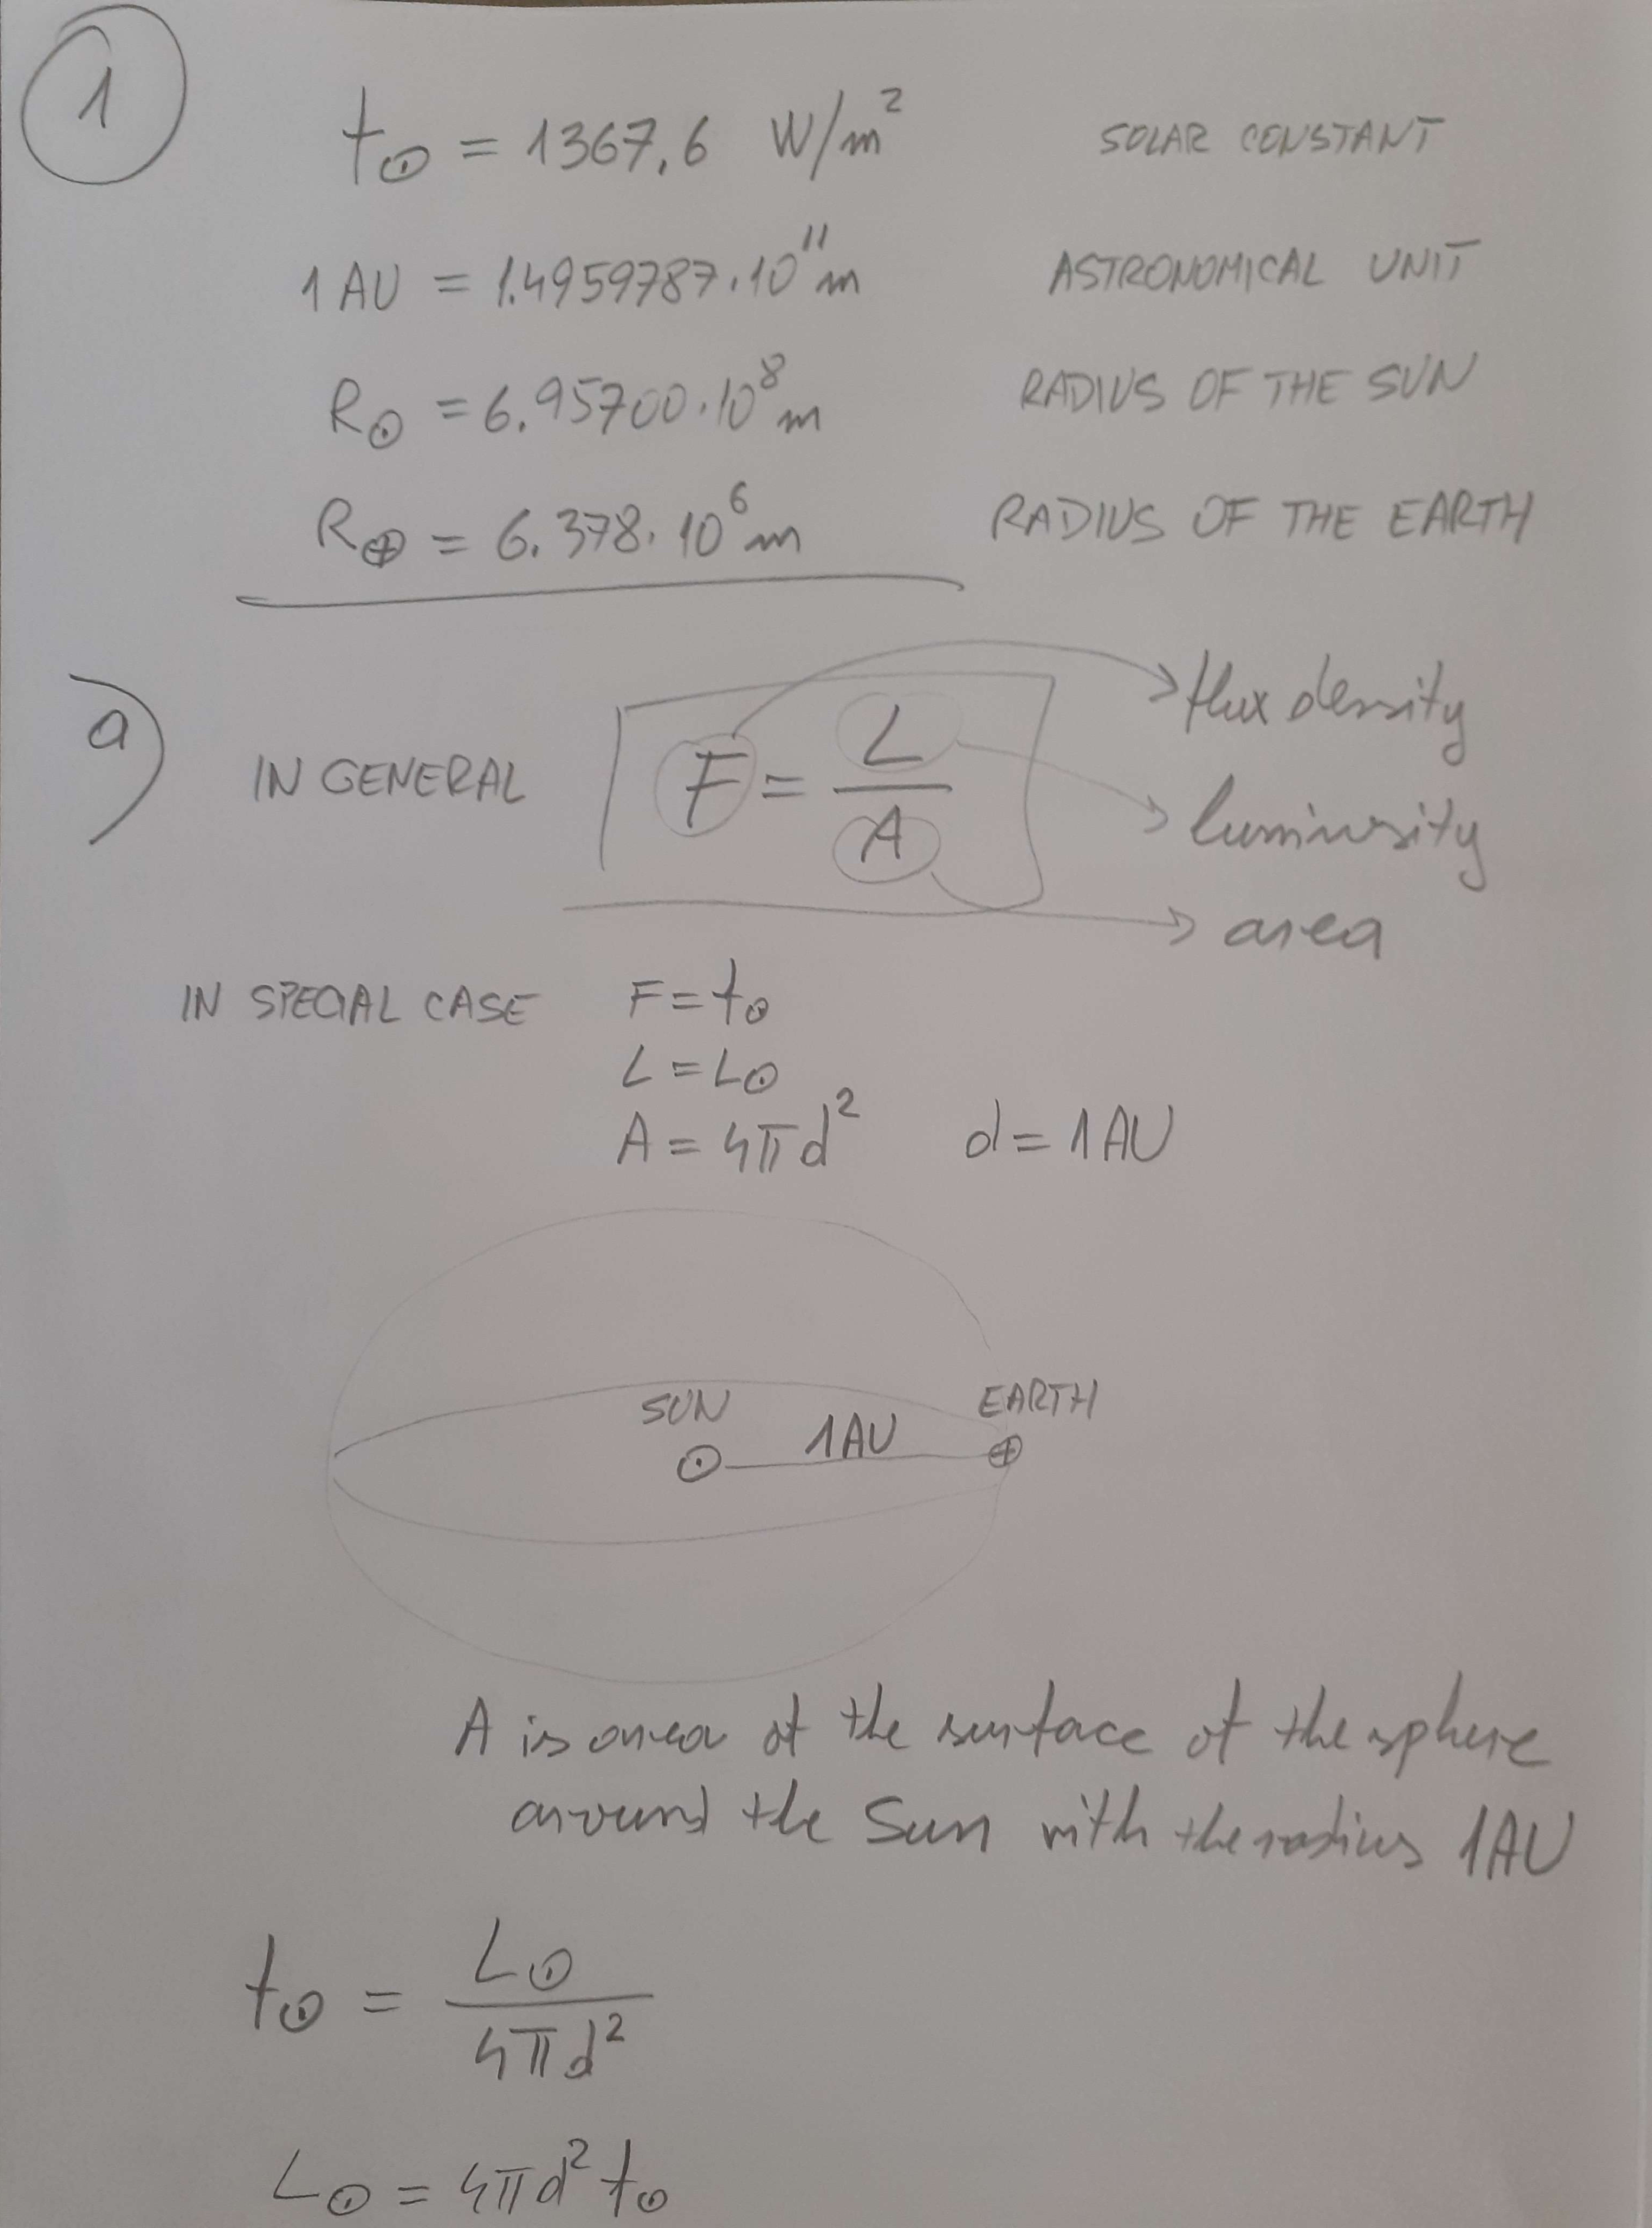 1
f⊙ = 1367,6 W/m² SOLAR CONSTANT
1 AU = 1.4959787.10¹¹m ASTRONOMICAL UNIT
R⊙ = 6.95700.10⁸m RADIUS OF THE SUN
R⊕ = 6.378.10⁶m RADIUS OF THE EARTH
a)
IN GENERAL F = L/A
flux density
luminosity
area
IN SPECIAL CASE F = f⊙
L = L⊙
A = 4πd² d = 1AU
SUN 1AU EARTH
⊙ ⊕
A is area of the surface of the sphere
around the Sun with the radius 1AU
f⊙ = L⊙/4πd²
L⊙ = 4πd² f⊙